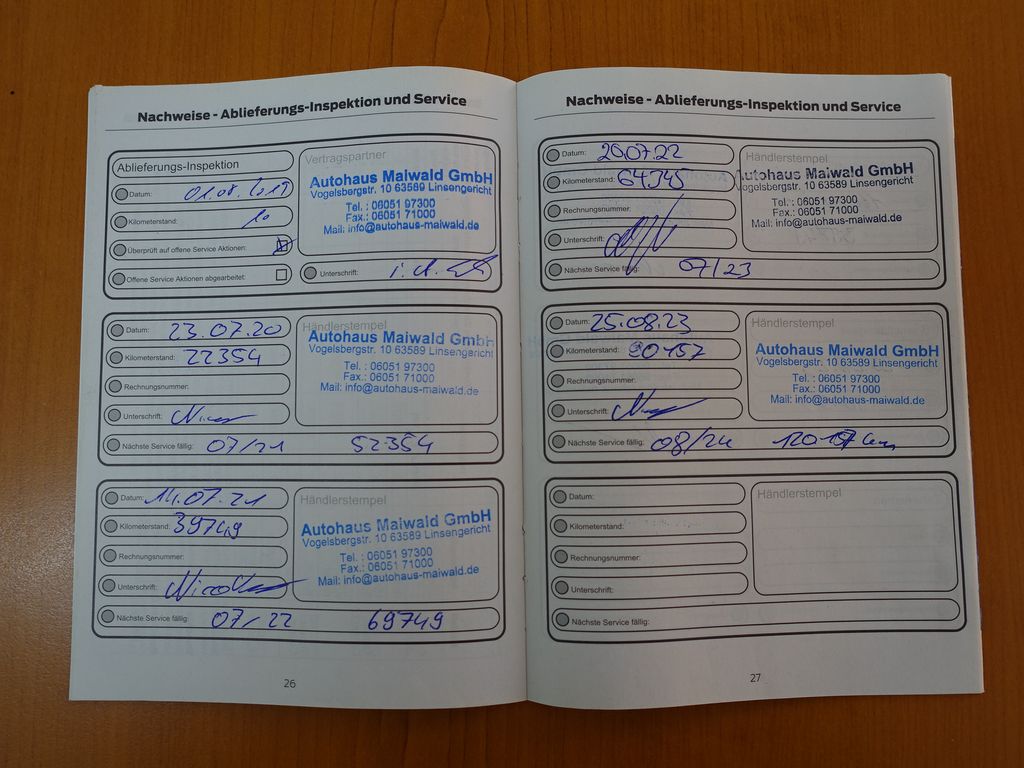 Nachweise - Ablieferungs-Inspektion und Service
Ablieferungs-Inspektion
Datum: 01.08.2019
Kilometerstand: 10
Überprüft auf offene Service Aktionen:
Offene Service Aktionen abgearbeitet:
Vertragspartner
Autohaus Maiwald GmbH
Vogelsbergstr. 10 63589 Linsengericht
Tel. : 06051 97300
Fax.: 06051 71000
Mail: info@autohaus-maiwald.de
Unterschrift: i. A.
Datum: 23.07.20
Kilometerstand: 22354
Rechnungsnummer:
Unterschrift:
Händlerstempel
Autohaus Maiwald GmbH
Vogelsbergstr. 10 63589 Linsengericht
Tel. : 06051 97300
Fax.: 06051 71000
Mail: info@autohaus-maiwald.de
Nächste Service fällig: 07/21 52354
Datum: 14.07.21
Kilometerstand: 39749
Rechnungsnummer:
Unterschrift:
Händlerstempel
Autohaus Maiwald GmbH
Vogelsbergstr. 10 63589 Linsengericht
Tel. : 06051 97300
Fax.: 06051 71000
Mail: info@autohaus-maiwald.de
Nächste Service fällig: 07/22 69749
26
Nachweise - Ablieferungs-Inspektion und Service
Datum: 20.07.22
Kilometerstand: 64345
Rechnungsnummer:
Unterschrift:
Händlerstempel
Autohaus Maiwald GmbH
Vogelsbergstr. 10 63589 Linsengericht
Tel. : 06051 97300
Fax.: 06051 71000
Mail: info@autohaus-maiwald.de
Nächste Service fällig: 07/23
Datum: 25.08.23
Kilometerstand: 90157
Rechnungsnummer:
Unterschrift:
Händlerstempel
Autohaus Maiwald GmbH
Vogelsbergstr. 10 63589 Linsengericht
Tel. : 06051 97300
Fax.: 06051 71000
Mail: info@autohaus-maiwald.de
Nächste Service fällig: 08/24
Datum:
Kilometerstand:
Rechnungsnummer:
Unterschrift:
Händlerstempel
Nächste Service fällig:
27